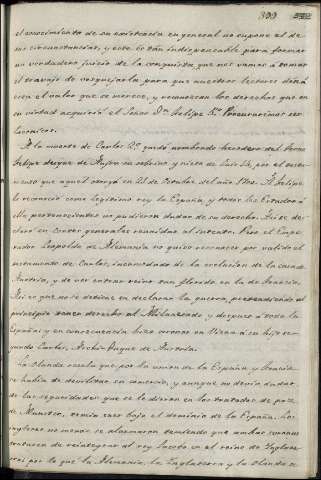 399
el conocimiento de su existencia en general no supone el de
sus circunstancias, y este es tan indispensable para formar
un verdadero juicio de la conquista que nos vamos à tomar
el trabajo de bosquejarla para que nuestros lectores den à
este el valor que se merece, y reconozcan los derechos que en
su virtud adquirió el Señor Dn. Felipe 5o. Procuraremos ser
lacónicos.
A la muerte de Carlos 2o. quedó nombrado heredero del trono
Felipe duque de Anjou su sobrino y nieto de Luis 14, por el testa-
mento que aquel otorgó en 2 de Octubre del año 1700. A Felipe
le reconoció como legítimo rey la España, y todos los Estados à
ella pertenecientes no pudieron dudar de su derecho. Asi se de-
claró en Cortes generales reunidas al intento. Pero el Empe-
rador Leopoldo de Alemania no quiso reconocer por valido el
testamento de Carlos, incomodado de la exclusion de la casa de
Austria, y de ver entrar reino tan florido en la de Francia.
Asi es que no se detiene en declarar la guerra, pretendiendo al
principio tener derecho al Milanesado y despues à toda la
España; y en consecuencia hizo coronar en Viena à su hijo se-
gundo Carlos, Archi-Duque de Austria.
La Olanda recela que por la union de la España y Francia
se habia de debilitar su comercio, y aunque no debia dudar
de las seguridades que se le dieron en los tratados de paz
de Munster, temia caer bajo el dominio de la España. Los
ingleses no menos se alarmaron temiendo que ambas coronas
tratasen de reintegrar al rey Jacobo en el reino de Inglater-
ra: por lo que la Alemania, la Inglaterra y la Olanda se